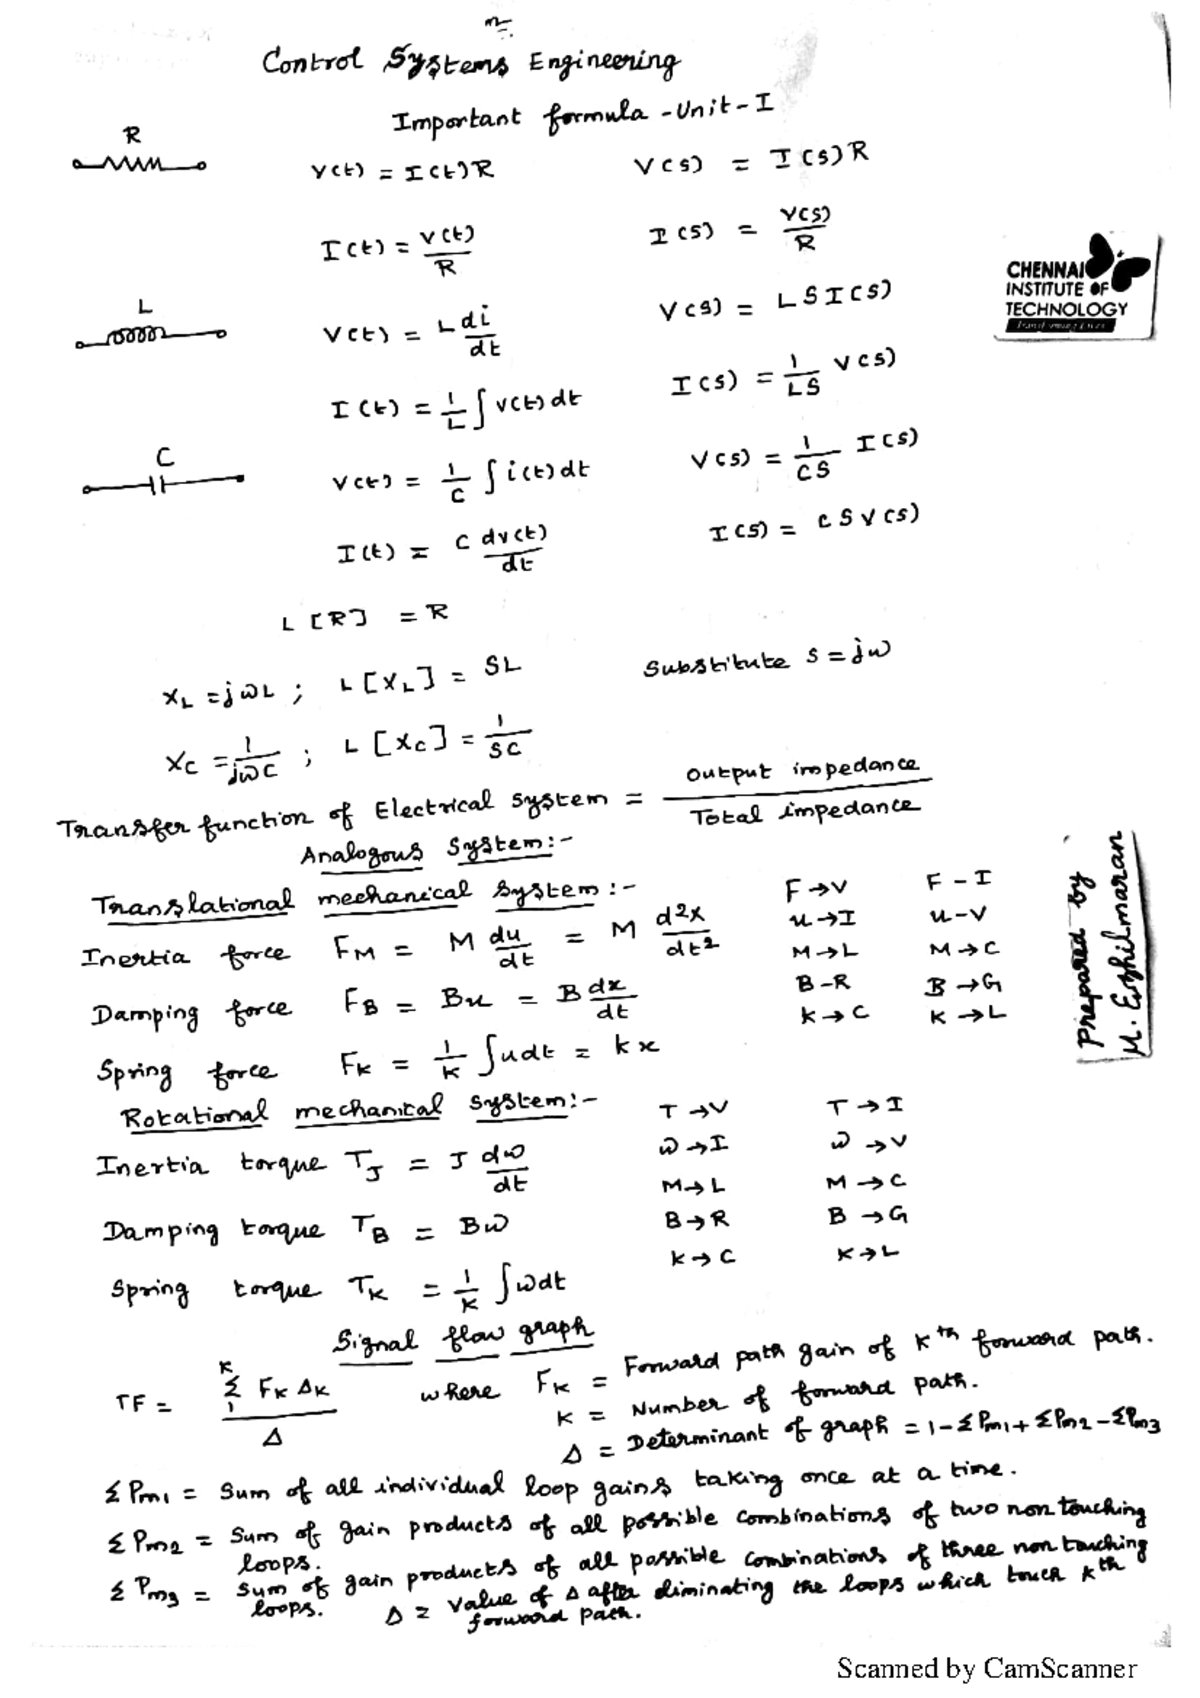 Control Systems Engineering
Important formula - Unit - I
R
V(t) = I(t)R V(s) = I(s)R
I(t) = V(t)/R I(s) = V(s)/R
CHENNAI
INSTITUTE OF
TECHNOLOGY
L
V(t) = L di/dt V(s) = LSI(s)
I(t) = 1/L ∫V(t)dt I(s) = 1/LS V(s)
C
V(t) = 1/C ∫i(t)dt V(s) = 1/CS I(s)
I(t) = C dv(t)/dt I(s) = CSV(s)
L[R] = R
XL = jωL ; L[XL] = SL Substitute s = jω
XC = 1/jωC ; L[XC] = 1/SC
Transfer function of Electrical System = Output impedance/Total impedance
Analogous System:-
Translational mechanical System:- F→V F-I
u→I u-V
Inertia force FM = M du/dt = M d²x/dt² M→L M→C
Damping force FB = Bu = B dx/dt B-R B→G
K→C K→L
Spring force FK = 1/K ∫udt = kx
Prepared by
M. Ezhilmaran
Rotational mechanical System:- T→V T→I
ω→I ω→V
Inertia torque TJ = J dω/dt M→L M→C
Damping torque TB = Bω B→R B→G
K→C K→L
Spring torque TK = 1/K ∫ωdt
Signal flow graph
TF = K Σ 1 FK ΔK / Δ where FK = Forward path gain of Kth forward path.
K = Number of forward path.
Δ = Determinant of graph = 1-ΣPm1+ΣPm2-ΣPm3
ΣPm1 = Sum of all individual loop gains taking once at a time.
ΣPm2 = Sum of gain products of all possible combinations of two non touching
loops.
ΣPm3 = Sum of gain products of all possible combinations of three non touching
loops. Δ = Value of Δ after eliminating the loops which touch Kth
forward path.
Scanned by CamScanner